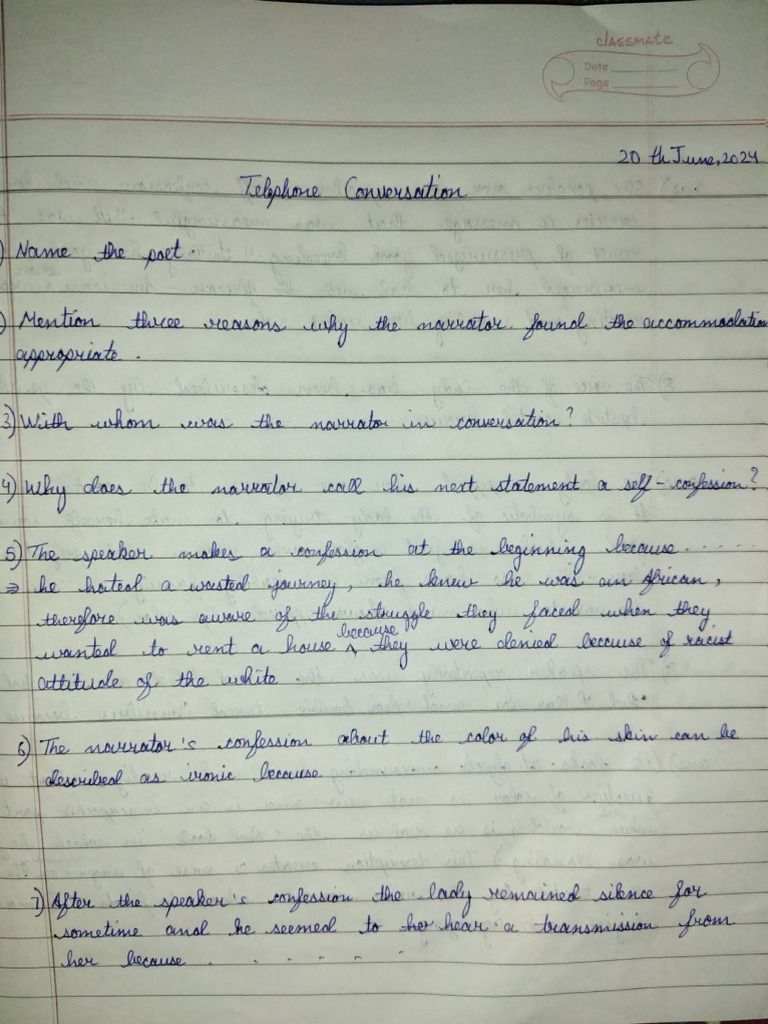 classmate
Date
Page
20 th June, 2024
Telephone Conversation
) Name the poet.
) Mention three reasons why the narrator found the accommodation
appropriate.
3) With whom was the narrator in conversation?
4) Why does the narrator call his next statement a self-confession?
5) The speaker makes a confession at the beginning because......
⇒ he hated a wasted journey, he knew he was an African,
therefore was aware of the struggle they faced when they
because
wanted to rent a house ^ they were denied because of racist
attitude of the white.
6) The narrator's confession about the color of his skin can be
described as ironic because
7) After the speaker's confession the lady remained silence for
sometime and he seemed to her hear a transmission from
her because . . . . . .